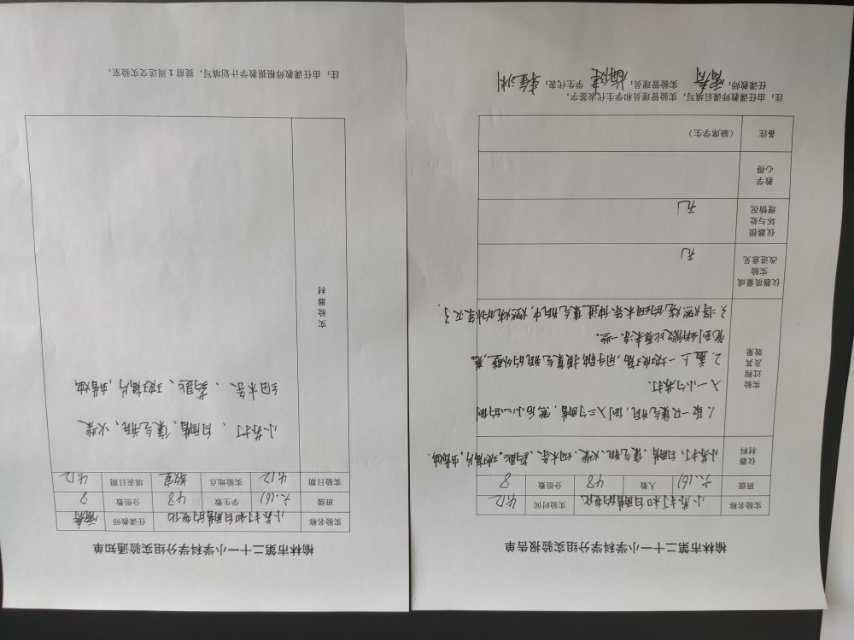 榆林市第二十一小学科学分组实验报告单
实验名称 小苏打和白醋的变化 实验时间 4.12
班级 六.(6) 人数 48 分组数 8
仪器材料 小苏打、白醋、集气瓶、火柴、细木条、药匙、玻璃片,蜡烛.
实验过程及其效果
1. 取一只集气瓶,倒入三勺醋,然后小心的倒
入一小勺苏打.
2. 盖上玻璃片,用手触摸集气瓶的外壁,感
觉到稍微比原来凉一些。
3. 将燃烧的细木条伸进集气瓶中,燃烧的木条灭了.
仪器质量或实验改进意见 无
仪器损坏与处理情况 无
教学心得
备注 (缺席学生)
注:由任课教师课后填写,实验管理员和学生代表签字。
任课教师: 实验管理员: 学生代表:
榆林市第二十一小学科学分组实验通知单
实验名称 小苏打和白醋的变化 任课教师
班级 六.(6) 学生数 48 分组数 8
实验日期 4.12 实验地点 教室 填表日期 4.12
实验器材
小苏打、白醋、集气瓶、火柴
细木条、药匙、玻璃片,蜡烛
注:由任课教师根据教学计划填写,提前1周送交实验室。